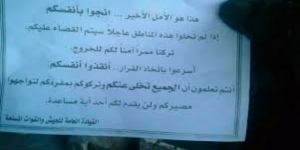 هذا هو الأمل الأخير ... انجوا بأنفسكم
إذا لم تخلوا هذه المناطق عاجلا سيتم القضاء عليكم.
تركنا ممراً آمناً لكم للخروج.
أسرعوا باتخاذ القرار.. أنقذوا أنفسكم
أنتم تعلمون أن الجميع تخلى عنكم وتركوكم بمفردكم لتواجهوا
مصيركم ولن يقدم لكم أحد أية مساعدة.
القيادة العامة للجيش والقوات المسلحة